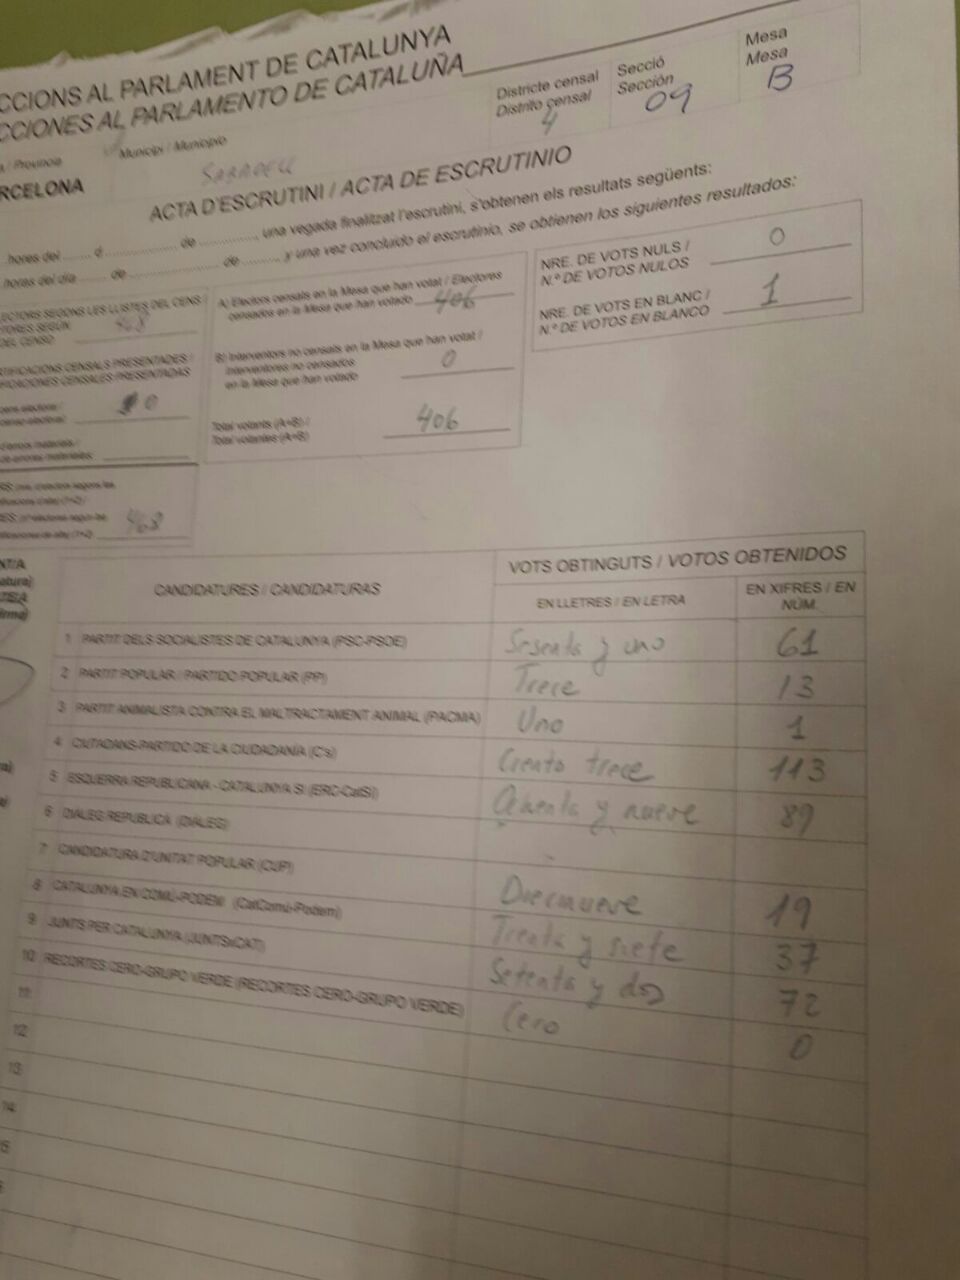 CCIONS AL PARLAMENT DE CATALUNYA
CCIONES AL PARLAMENTO DE CATALUÑA
Districte censal
Distrito censal
4
Secció
Sección
09
Mesa
Mesa
B
/ Provincia
Municipi / Municipio
RCELONA
SABADELL
ACTA D'ESCRUTINI / ACTA DE ESCRUTINIO
hores del ...... d ...................... de ................, una vegada finalitzat l'escrutini, s'obtenen els resultats següents:
horas del día ...... de ........................... de .........., y una vez concluido el escrutinio, se obtienen los siguientes resultados:
ECTORS SEGONS LES LLISTES DEL CENS /
TORES SEGÚN
DEL CENSO
468
TIFICACIONS CENSALS PRESENTADES /
FICACIONES CENSALES PRESENTADAS
0
468
A) Electors censats en la Mesa que han votat / Electores
censados en la Mesa que han votado
406
B) Interventors no censats en la Mesa que han votat /
Interventores no censados
en la Mesa que han votado
0
Total votants (A+B) /
Total votantes (A+B)
406
NRE. DE VOTS NULS /
N.º DE VOTOS NULOS
0
NRE. DE VOTS EN BLANC /
N.º DE VOTOS EN BLANCO
1
CANDIDATURES / CANDIDATURAS
VOTS OBTINGUTS / VOTOS OBTENIDOS
EN LLETRES / EN LETRA
EN XIFRES / EN NÚM.
1 PARTIT DELS SOCIALISTES DE CATALUNYA (PSC-PSOE)
Sesenta y uno
61
2 PARTIT POPULAR / PARTIDO POPULAR (PP)
Trece
13
3 PARTIT ANIMALISTA CONTRA EL MALTRACTAMENT ANIMAL (PACMA)
Uno
1
4 CIUTADANS-PARTIDO DE LA CIUDADANÍA (C's)
Ciento trece
113
5 ESQUERRA REPUBLICANA - CATALUNYA SÍ (ERC-CatSí)
y nueve
89
6 DIÀLEG REPUBLICÀ (DIÀLEG)
7 CANDIDATURA D'UNITAT POPULAR (CUP)
Diecinueve
19
8 CATALUNYA EN COMÚ-PODEM (CatComú-Podem)
Treinta y siete
37
9 JUNTS PER CATALUNYA (JUNTSxCAT)
Setenta y dos
72
10 RECORTES CERO-GRUPO VERDE (RECORTES CERO-GRUPO VERDE)
Cero
0
11
12
13
14